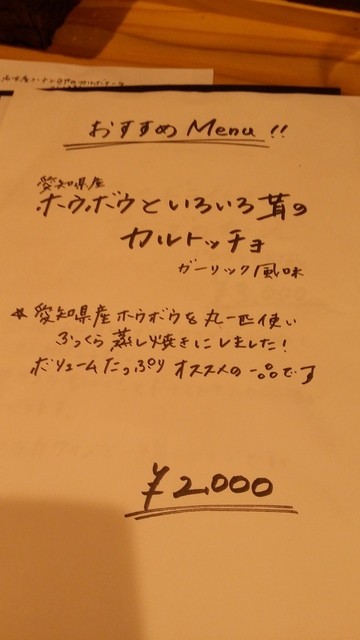 おすすめ Menu !!
愛知県産
ホウボウといろいろ茸の
カルトッチョ
ガーリック風味
★愛知県産ホウボウを丸一匹使い
ふっくら蒸し焼きにしました!
ボリュームたっぷり オススメの一品です
¥2.000